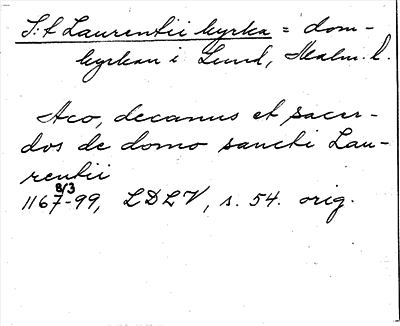 S:t Laurentii kyrka = dom-
kyrkan i Lund, Malm. l.
Aco, decanus et sacer-
dos de domo sancti Lau-
rentii
8/3
1167-99, LDLV, s. 54. orig.